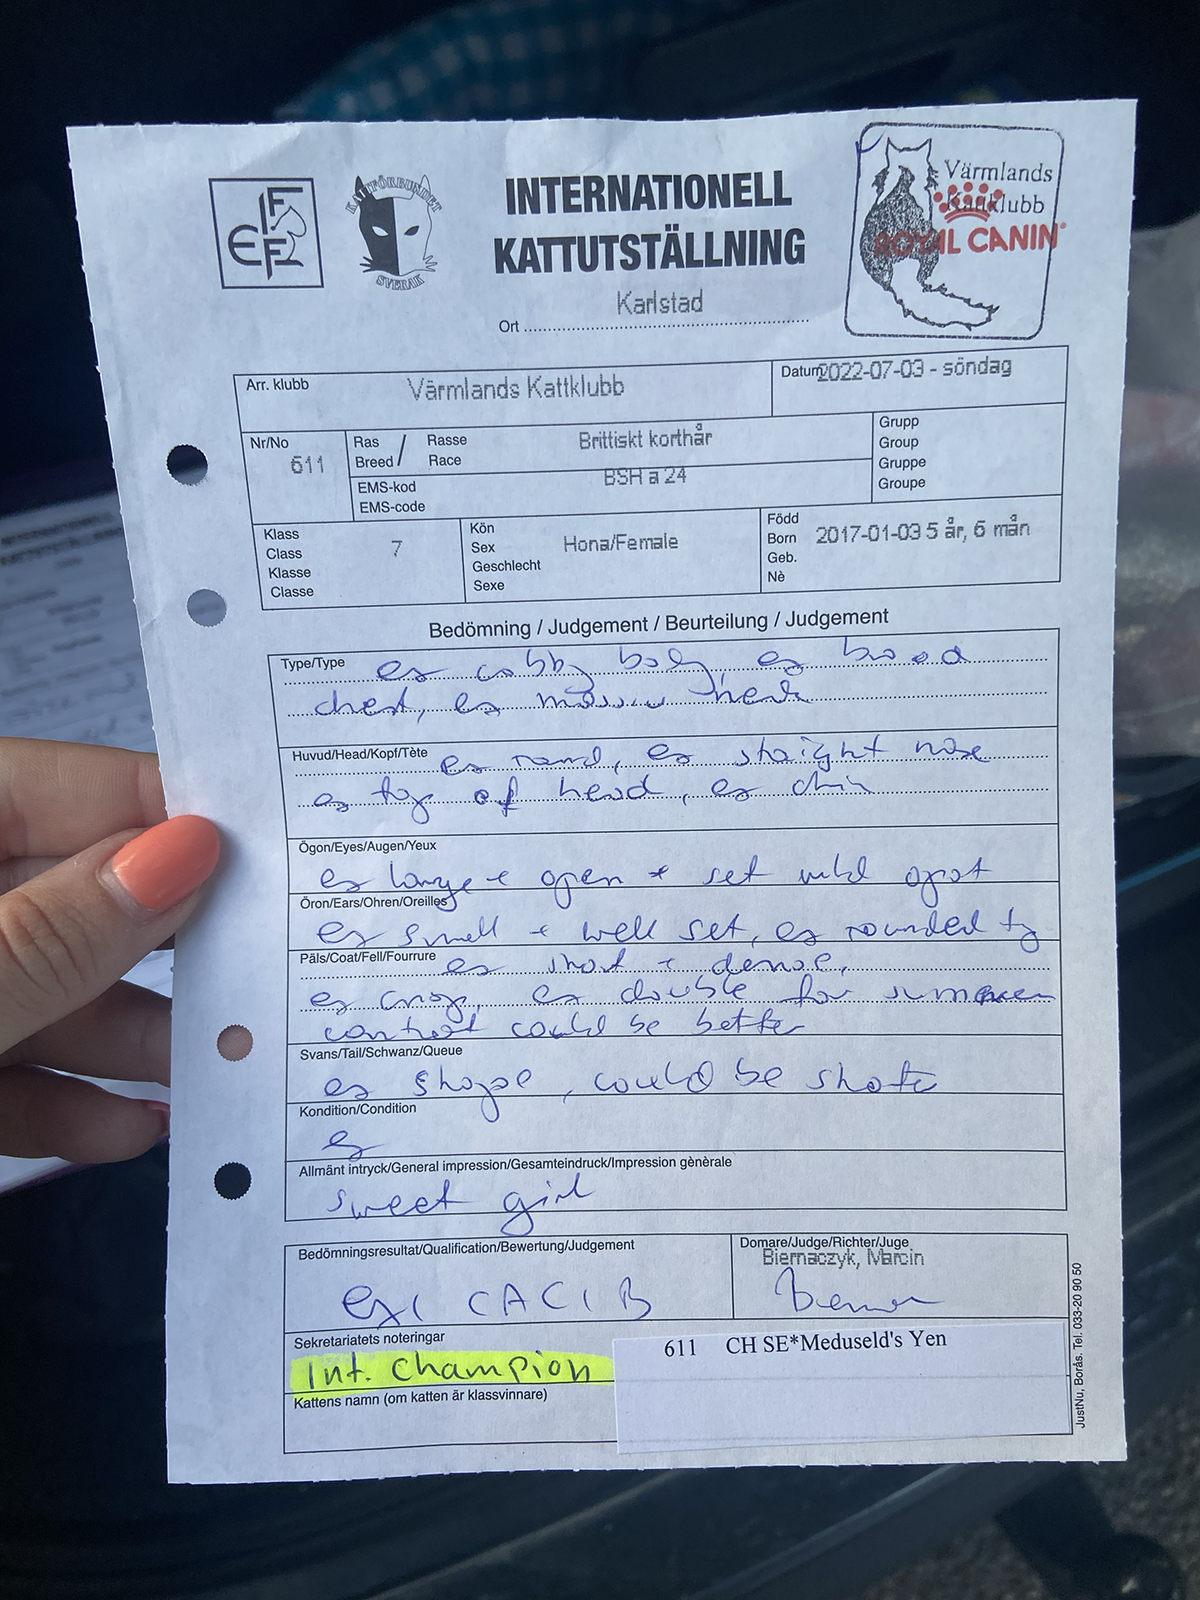 FIFe
KATTFÖRBUNDET
SVERAK
INTERNATIONELL
KATTUTSTÄLLNING
Ort Karlstad
Värmlands
Kattklubb
ROYAL CANIN
Arr. klubb Värmlands Kattklubb
Datum 2022-07-03 - söndag
Nr/No 611
Ras / Rasse
Breed / Race
Brittiskt korthår
EMS-kod
EMS-code
BSH a 24
Grupp
Group
Gruppe
Groupe
Klass
Class
Klasse
Classe
7
Kön
Sex
Geschlecht
Sexe
Hona/Female
Född
Born
Geb.
Nè
2017-01-03 5 år, 6 mån
Bedömning / Judgement / Beurteilung / Judgement
Type/Type ex cobby body, ex broad
chest, ex massive neck
Huvud/Head/Kopf/Tète ex round, ex straight nose
ex top of head, ex chin
Ögon/Eyes/Augen/Yeux
ex large + open + set wild apart
Öron/Ears/Ohren/Oreilles
ex small + well set, ex rounded tip
Päls/Coat/Fell/Fourrure ex short + dense,
ex crisp, ex double for summer
contrast could be better
Svans/Tail/Schwanz/Queue
ex shape, could be shorter
Kondition/Condition
ex
Allmänt intryck/General impression/Gesamteindruck/Impression gènèrale
sweet girl
Bedömningsresultat/Qualification/Bewertung/Judgement
Ex1 CACIB
Domare/Judge/Richter/Juge
Biernaczyk, Marcin
Sekretariatets noteringar
Int. Champion
611 CH SE*Meduseld's Yen
Kattens namn (om katten är klassvinnare)
JustNu, Borås. Tel. 033-20 90 50